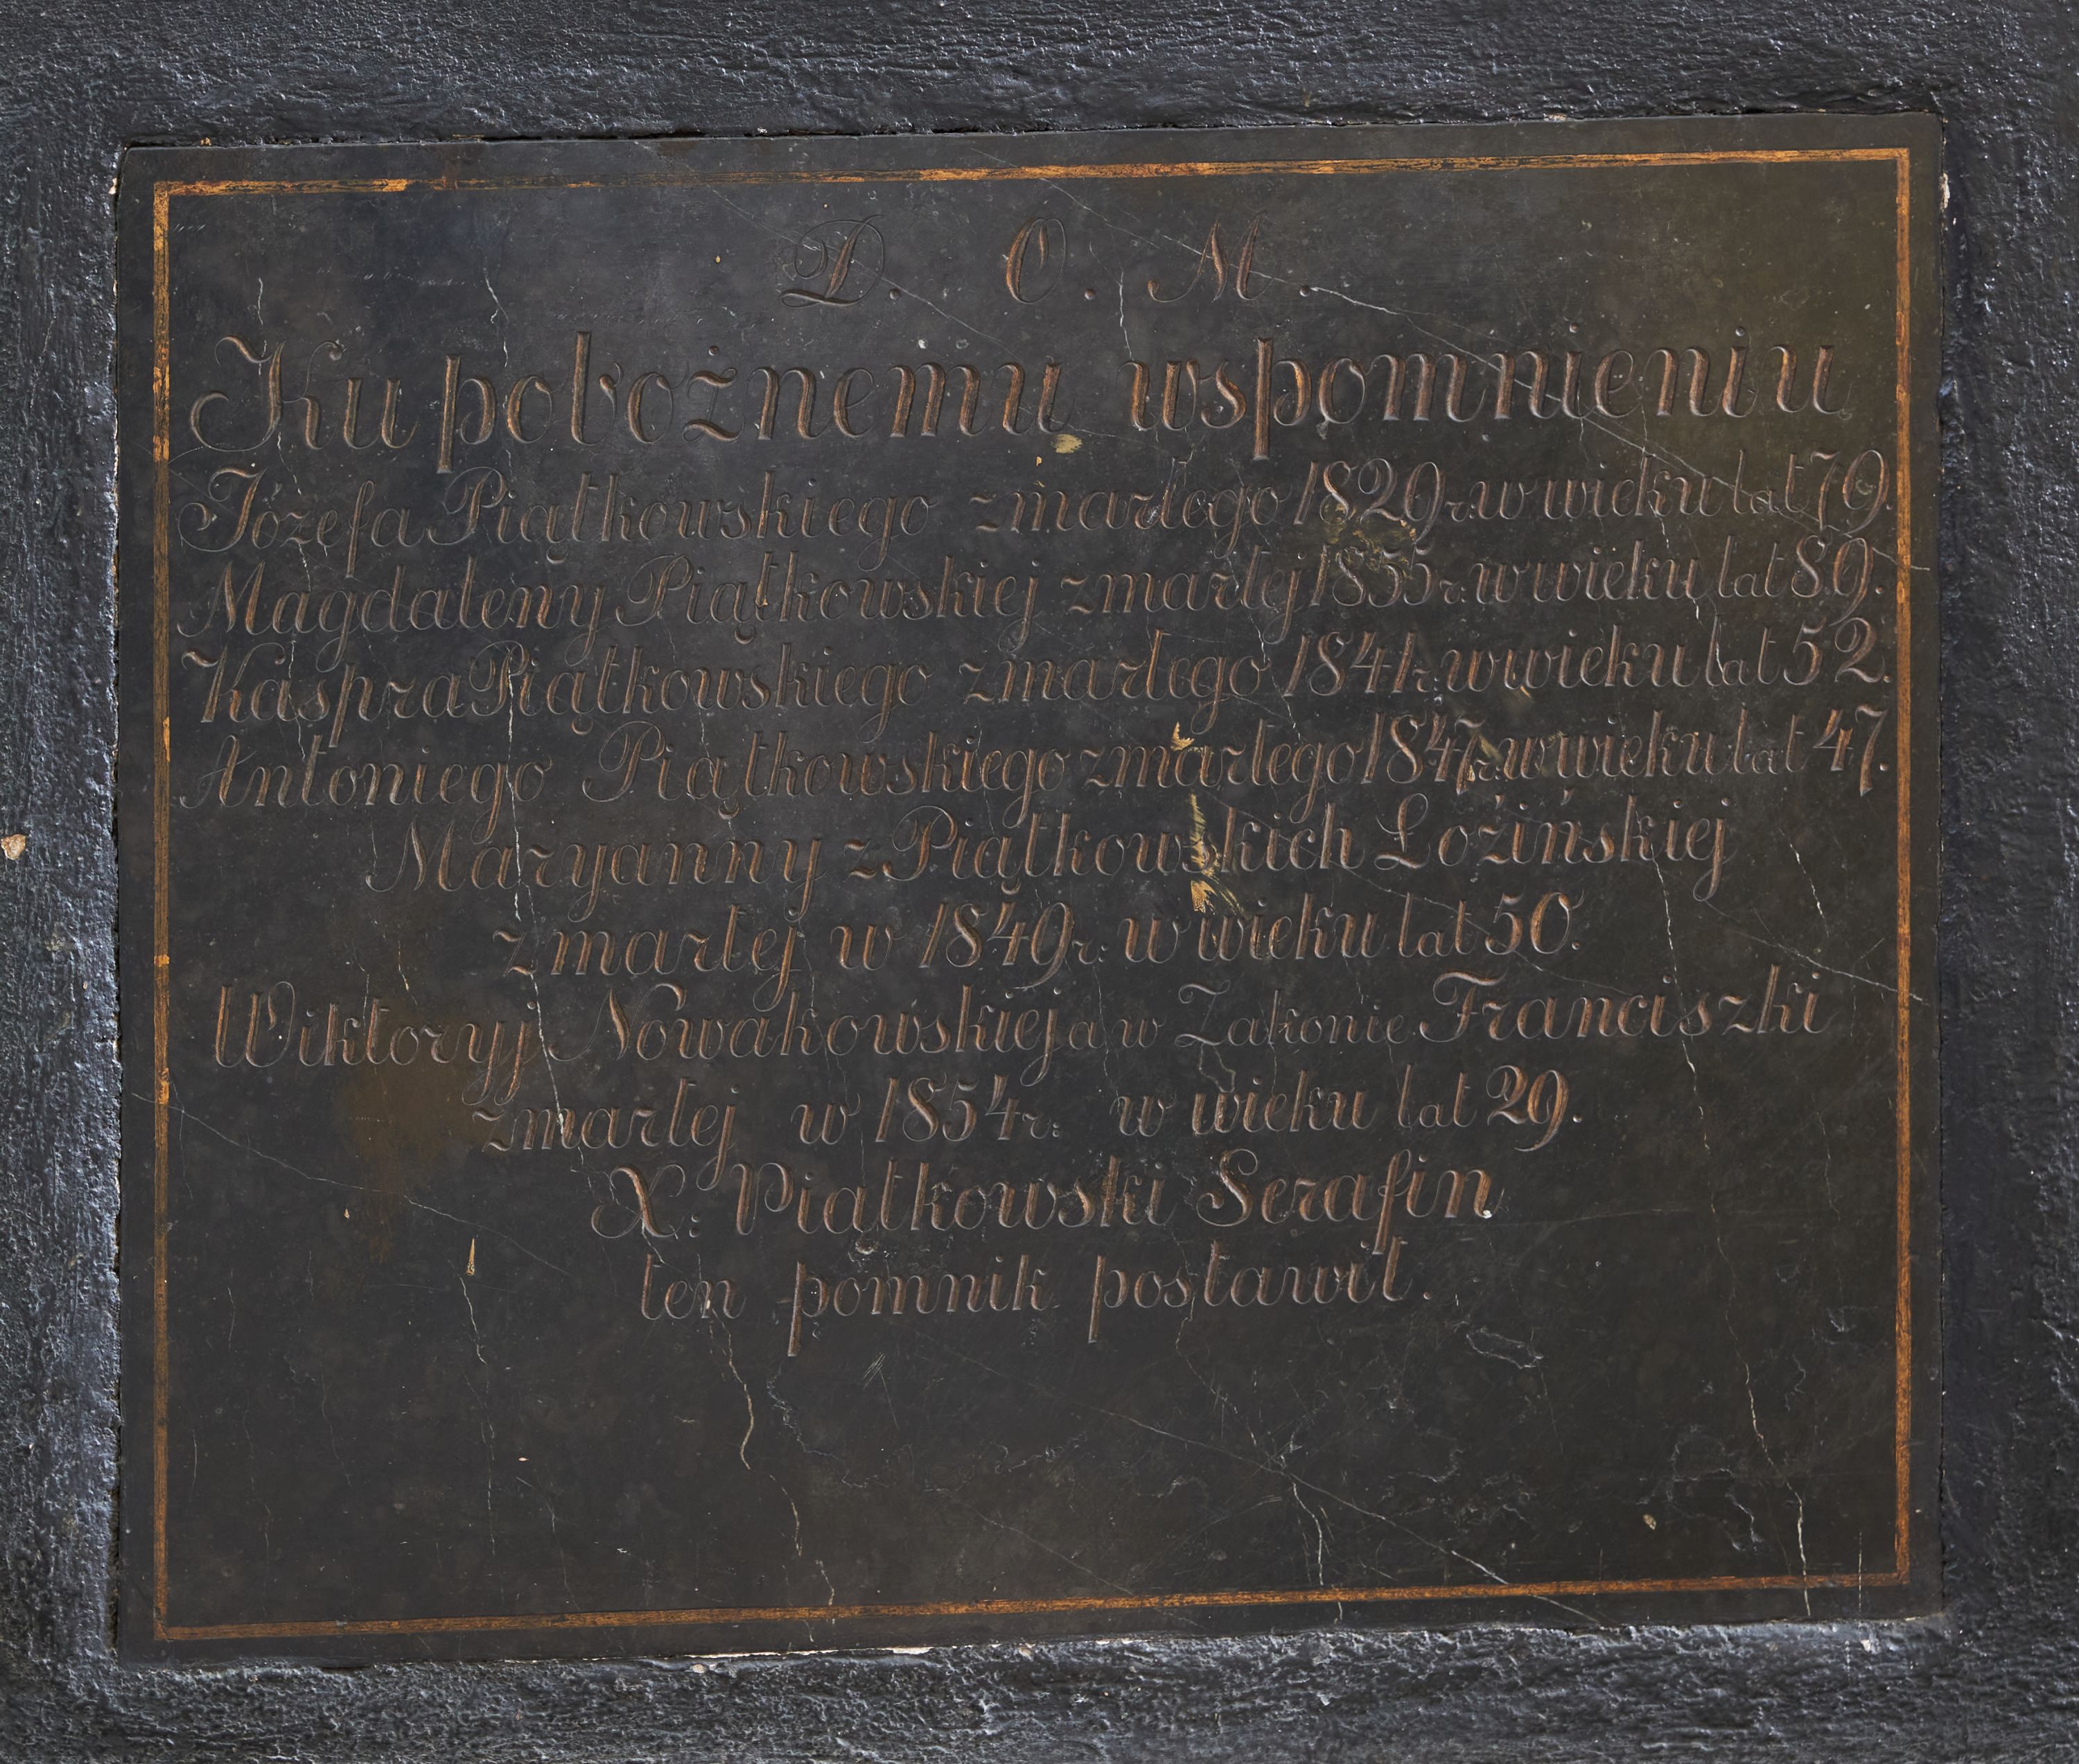 D. O. M.
Ku pobożnemu wspomnieniu
Józefa Piątkowskiego zmarłego 1829 r. w wieku lat 79.
Magdaleny Piątkowskiej zmarłej 1855 r. w wieku lat 89.
Kaspra Piątkowskiego zmarłego 1841 r. w wieku lat 52.
Antoniego Piątkowskiego zmarłego 1847 r. w wieku lat 47.
Maryanny z Piątkowskich Łoźińskiej
zmarłej w 1849 r: w wieku lat 50.
Wiktoryj Nowakowskiej a w Zakonie Franciszki
zmarłej w 1854 r: w wieku lat 29.
X: Piątkowski Serafin
ten pomnik postawił.